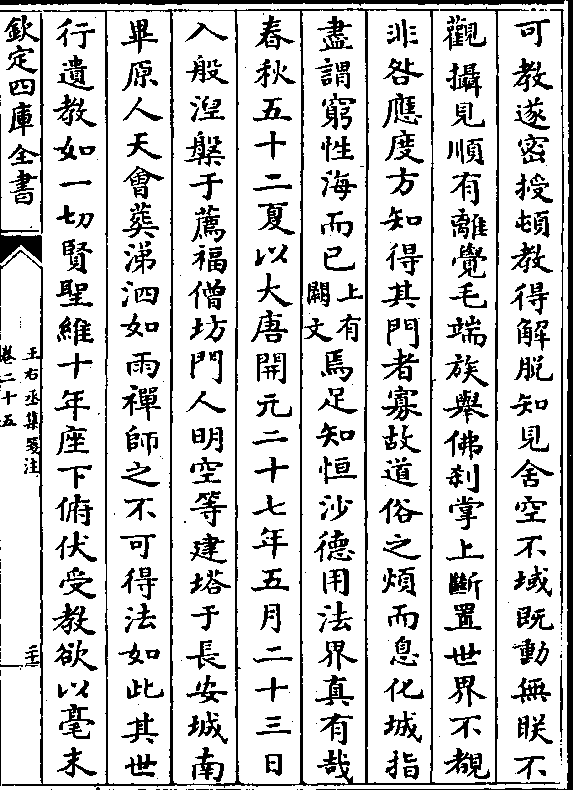 可教遂密授頓教得解脫知見舍空不域既動無朕不
觀攝見順有離覺毛端族舉佛刹掌上斷置世界不覩
非咎應度方知得其門者寡故道俗之煩而息化城指
盡謂窮性海而已上有闕文焉足知恒沙德用法界真有哉
春秋五十二夏以大唐開元二十七年五月二十三日
入般涅槃于薦福僧坊門人明空等建塔于長安城南
畢原人天會葬涕泗如雨禪師之不可得法如此其世
行遺教如一切賢聖維十年座下俯伏受教欲以毫末
欽定四庫全書
王右丞集箋注
卷二十五